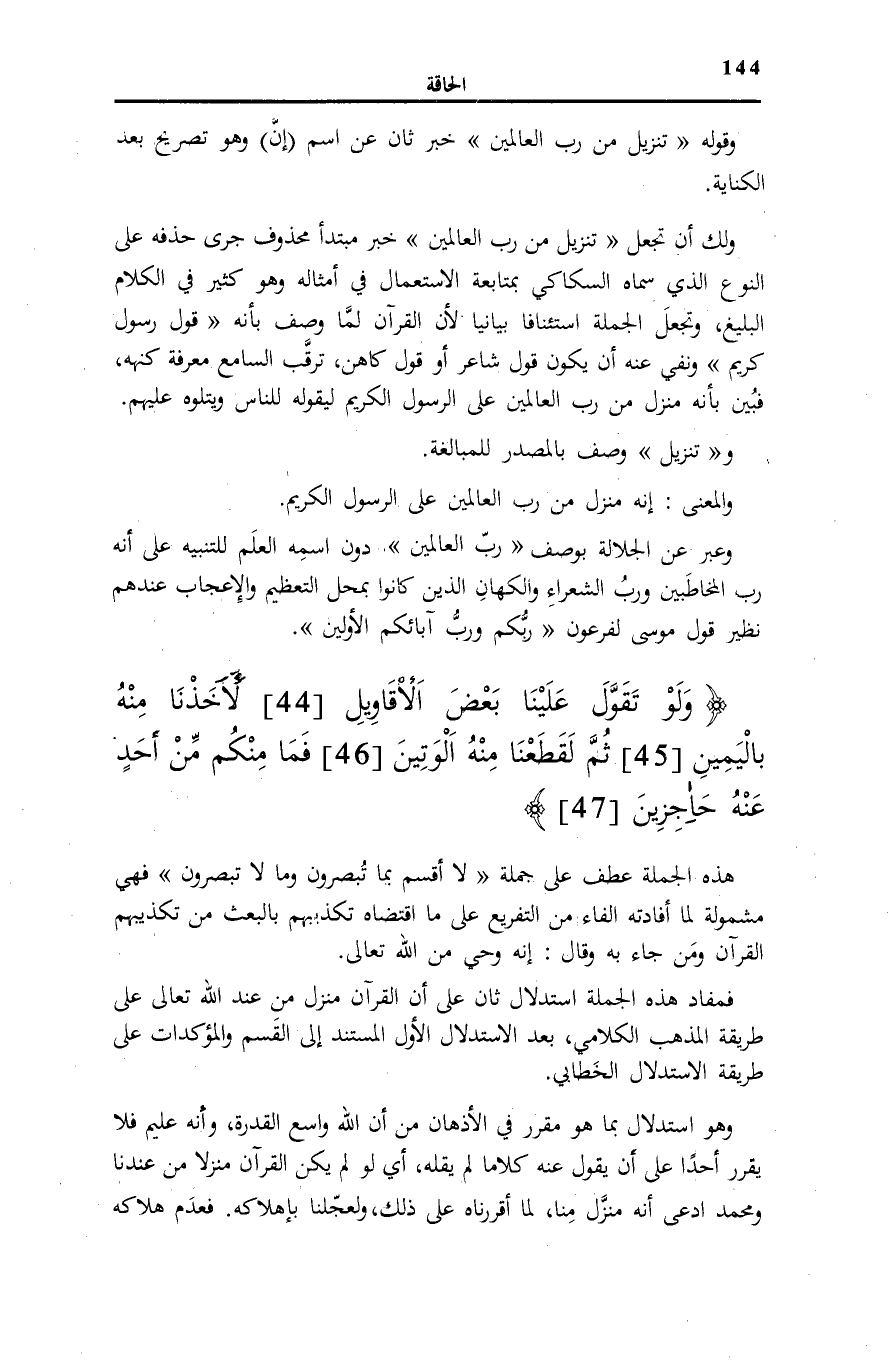 144
الحاقة
وقوله « تنزيل من رب العالمين » خبر ثان عن اسم (إنّ) وهو تصريح بعد
الكناية.
ولك أن تجعل « تنزيل من رب العالمين » خبر مبتدأ محذوف جرى حذفه على
النوع الذي سماه السكاكي بمتابعة الاستعمال في أمثاله وهو كثير في الكلام
البليغ، وتجعلَ الجملة استئنافا بيانيا لأن القرآن لمَّا وصف بأنه « قول رسول
كريم » ونفي عنه أن يكون قول شاعر أو قول كاهن، ترقَّب السامع معرفة كنهه،
فبُين بأنه منزل من رب العالمين على الرسول الكريم ليقوله للناس ويتلوه عليهم.
و« تنزيل » وصف بالمصدر للمبالغة.
والمعنى : إنه منزل من رب العالمين على الرسول الكريم.
وعبر عن الجلالة بوصف « ربّ العالمين » دون اسمِه العلَم للتنبيه على أنه
رب المخاطَبين وربُ الشعراءِ والكهانِ الذين كانوا بمحل التعظيم والإعجاب عندهم
نظير قول موسى لفرعون « ربُّكم وربُّ آبائكم الأولين ».
﴿ وَلَوْ تَقَوَّلَ عَلَيْنَا بَعْضَ اَلْأَقَاوِيلِ [44] لَأَخَذْنَا مِنْهُ
بِالْيَمِينِ [45] ثُمَّ لَقَطَعْنَا مِنْهُ اَلْوَتِينَ [46] فَمَا مِنْكُم مِّنْ أَحَدٍ
عَنْهُ حَٰجِزِينَ [47] ﴾
هذه الجملة عطف على جملة « لا أقسم بما تُبصرون وما لا تبصرون » فهي
مشمولة لما أفادته الفاء من التفريع على ما اقتضاه تكذيبهم بالبعث من تكذيبهم
القرآن ومَن جاء به وقال : إنه وحي من الله تعالى.
فمفاد هذه الجملة استدلال ثان على أن القرآن منزل من عند الله تعالى على
طريقة المذهب الكلامي، بعد الاستدلال الأول المستند إلى القَسم والمؤكدات على
طريقة الاستدلال الخَطابي.
وهو استدلال بما هو مقرر في الأذهان من أن الله واسع القدرة، وأنه عليم فلا
يقرر أحدًا على أن يقول عنه كلاما لم يقله، أي لو لم يكن القرآن منزلا من عندنا
ومحمد ادعى أنه منزَّل مِنا، لما أقررناه على ذلك، ولعجّلنا بإهلاكه. فعدَم هلاكه